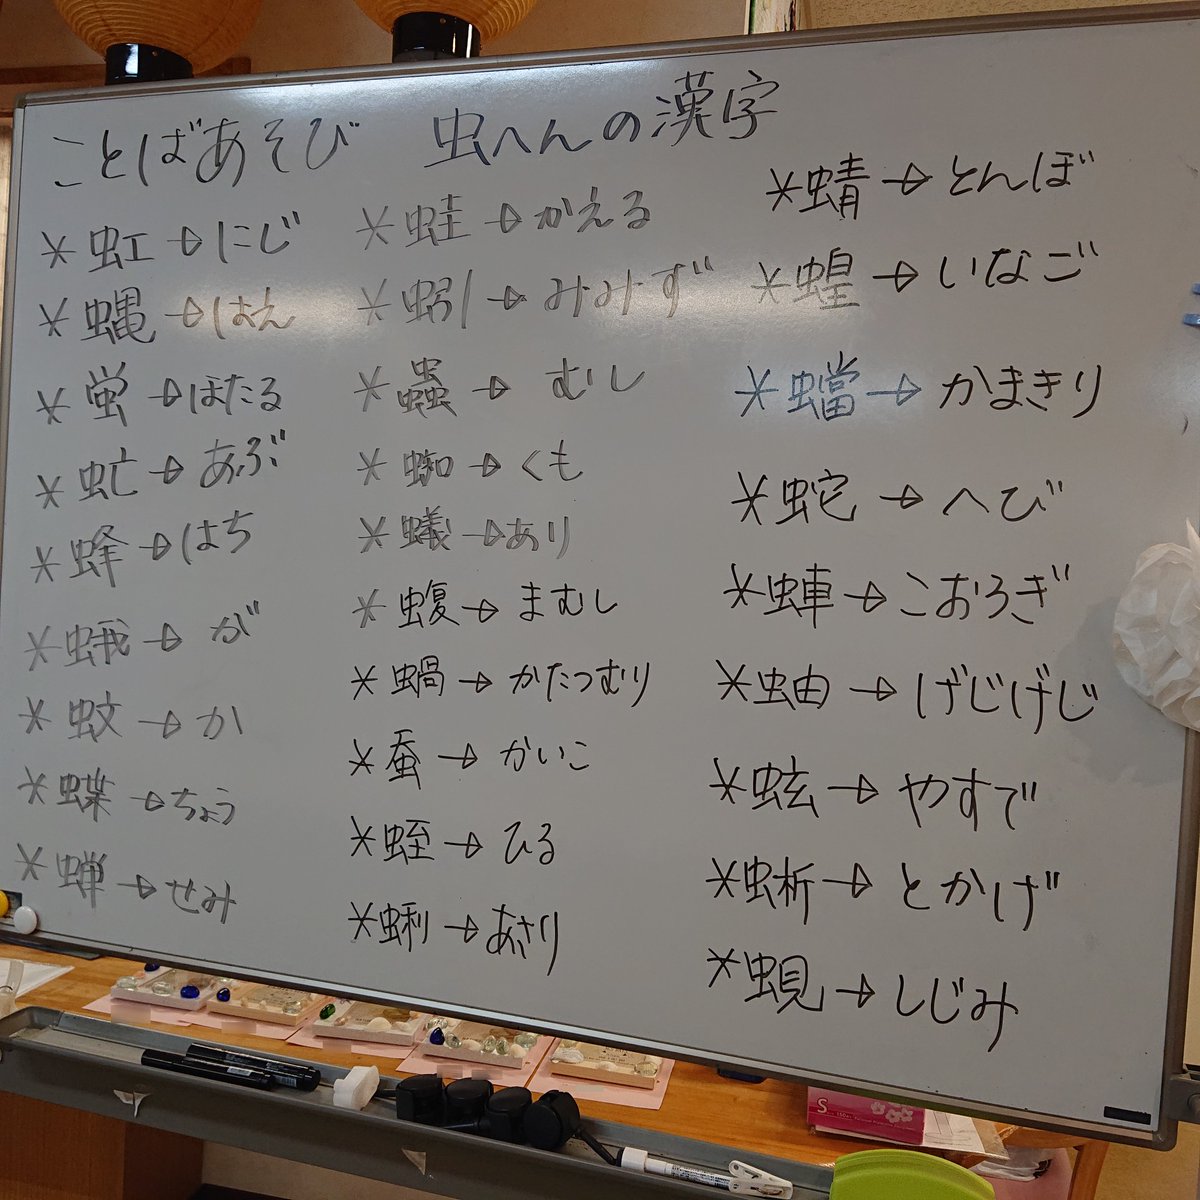 ことばあそび 虫へんの漢字
*虹→にじ
*蝿→はえ
*蛍→ほたる
*虻→あぶ
*蜂→はち
*蛾→が
*蚊→か
*蝶→ちょう
*蝉→せみ
*蛙→かえる
*蚓→みみず
*蟲→むし
*蜘→くも
*蟻→あり
*蝮→まむし
*蝸→かたつむり
*蚕→かいこ
*蛭→ひる
*蜊→あさり
*蜻→とんぼ
*蝗→いなご
*蟷→かまきり
*蛇→へび
*蛼→こおろぎ
*蚰→げじげじ
*蚿→やすで
*蜥→とかげ
*蜆→しじみ
S